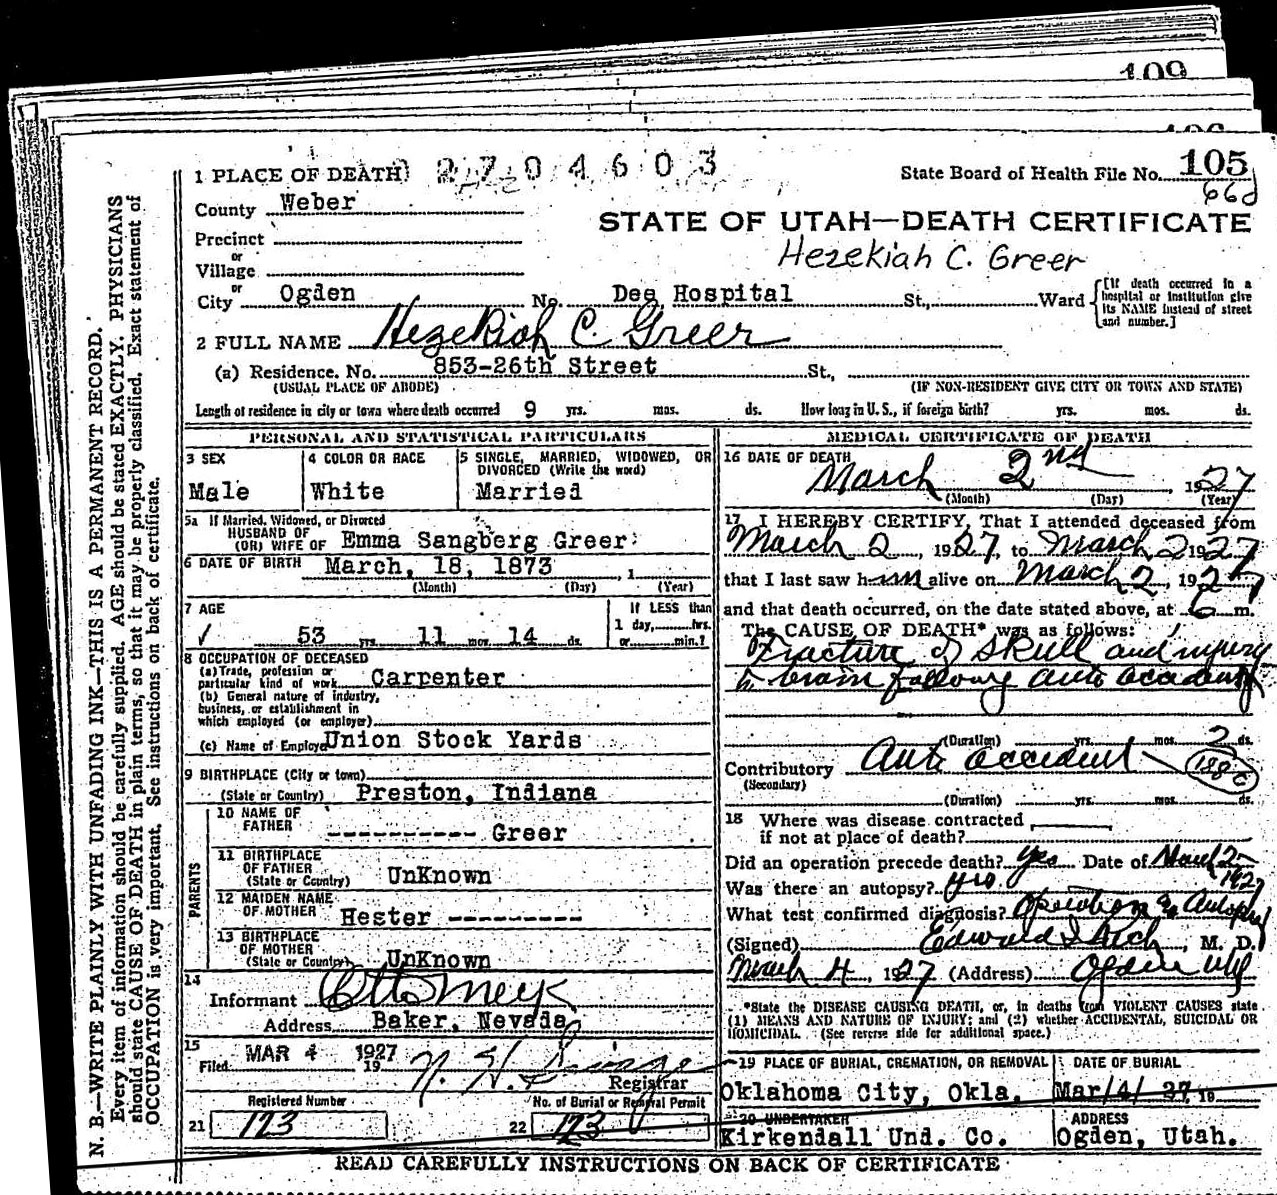 109
106
1 PLACE OF DEATH 2704603
State Board of Health File No. 105
County Weber
STATE OF UTAH—DEATH CERTIFICATE
Precinct
or
Village
Hezekiah C. Greer
or
City Ogden No. Des Hospital St., Ward
[If death occurred in a hospital or institution give its NAME instead of street and number.]
2 FULL NAME Hezekiah C Greer
(a) Residence. No. 853-26th Street St.,
(USUAL PLACE OF ABODE) (IF NON-RESIDENT GIVE CITY OR TOWN AND STATE)
Length of residence in city or town where death occurred 9 yrs. mos. ds. How long in U. S., if foreign birth? yrs. mos. ds.
PERSONAL AND STATISTICAL PARTICULARS
3 SEX
Male
4 COLOR OR RACE
White
5 SINGLE, MARRIED, WIDOWED, OR
DIVORCED (Write the word)
Married
5a If Married, Widowed, or Divorced
HUSBAND OF
(OR) WIFE OF Emma Sangberg Greer
6 DATE OF BIRTH March, 18, 1873 , 1
(Month) (Day) (Year)
7 AGE
✓ 53 yrs. 11 mos. 14 ds.
If LESS than
1 day, hrs.
or min.?
8 OCCUPATION OF DECEASED
(a) Trade, profession or
particular kind of work Carpenter
(b) General nature of industry,
business, or establishment in
which employed (or employer)
(c) Name of Employer Union Stock Yards
9 BIRTHPLACE (City or town)
(State or Country) Preston, Indiana
PARENTS
10 NAME OF
FATHER ---------- Greer
11 BIRTHPLACE
OF FATHER
(State or Country) UnKnown
12 MAIDEN NAME
OF MOTHER Hester ---------
13 BIRTHPLACE
OF MOTHER
(State or Country) UnKnown
14
Informant Otto Meyk
Address Baker, Nevada
15
Filed MAR 4 1927
19
Registrar
Registered Number
21 123
No. of Burial or Removal Permit
22 123
MEDICAL CERTIFICATE OF DEATH
16 DATE OF DEATH
March 2nd , 1927
(Month) (Day) (Year)
17 I HEREBY CERTIFY, That I attended deceased from
March 2, 1927, to March 2 1927
that I last saw him alive on March 2, 1927
and that death occurred, on the date stated above, at 6 m.
The CAUSE OF DEATH* was as follows:
Fracture of Skull and injury
to brain following auto accident
(Duration) yrs. mos. 2 ds.
Contributory Auto accident 188c
(Secondary)
(Duration) yrs. mos. ds.
18 Where was disease contracted
if not at place of death?
Did an operation precede death? yes Date of March 2-
1927
Was there an autopsy? yes
What test confirmed diagnosis? Operation & Autopsy
(Signed) Edward I Rich, M. D.
March 4, 1927 (Address) Ogden Utah
*State the DISEASE CAUSING DEATH, or, in deaths from VIOLENT CAUSES state
(1) MEANS AND NATURE OF INJURY; and (2) whether ACCIDENTAL, SUICIDAL OR
HOMICIDAL. (See reverse side for additional space.)
19 PLACE OF BURIAL, CREMATION, OR REMOVAL
Oklahoma City, Okla.
DATE OF BURIAL
Mar/4/ 27, 19
20 UNDERTAKER
Kirkendall Und. Co.
ADDRESS
Ogden, Utah.
READ CAREFULLY INSTRUCTIONS ON BACK OF CERTIFICATE
N. B.—WRITE PLAINLY WITH UNFADING INK—THIS IS A PERMANENT RECORD.
Every item of information should be carefully supplied. AGE should be stated EXACTLY. PHYSICIANS
should state CAUSE OF DEATH in plain terms, so that it may be properly classified. Exact statement of
OCCUPATION is very important. See instructions on back of certificate.